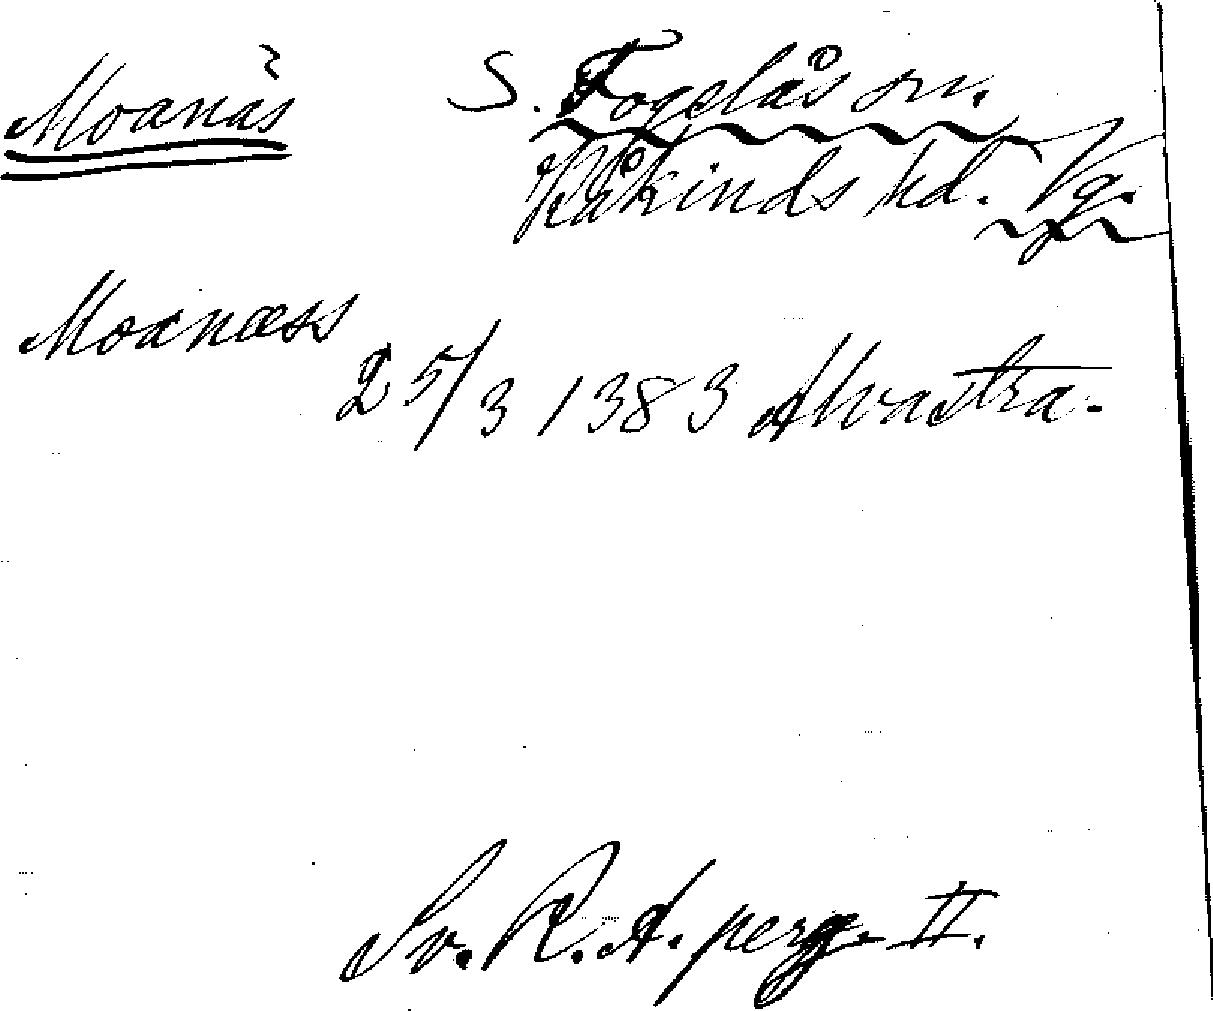 Moanäs ? S. Fogelås sn.
Kåkinds hd. Vg.
Moanæss
25/3 1383 Alvastra.
Sv. R. A. perg. II.